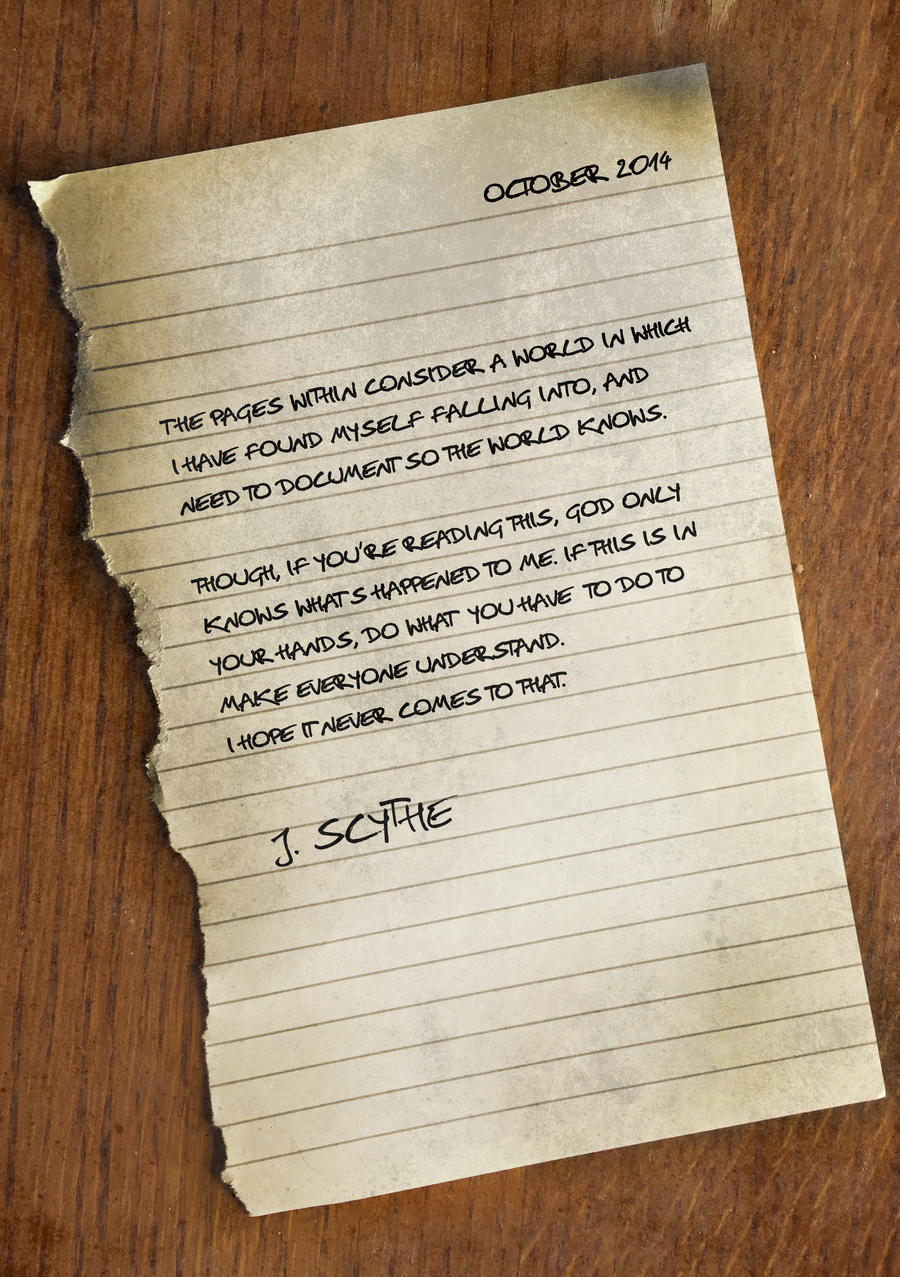 OCTOBER 2014
THE PAGES WITHIN CONSIDER A WORLD IN WHICH
I HAVE FOUND MYSELF FALLING INTO, AND
NEED TO DOCUMENT SO THE WORLD KNOWS.
THOUGH, IF YOU'RE READING THIS, GOD ONLY
KNOWS WHAT'S HAPPENED TO ME. IF THIS IS IN
YOUR HANDS, DO WHAT YOU HAVE TO DO TO
MAKE EVERYONE UNDERSTAND.
I HOPE IT NEVER COMES TO THAT.
J. SCYTHE